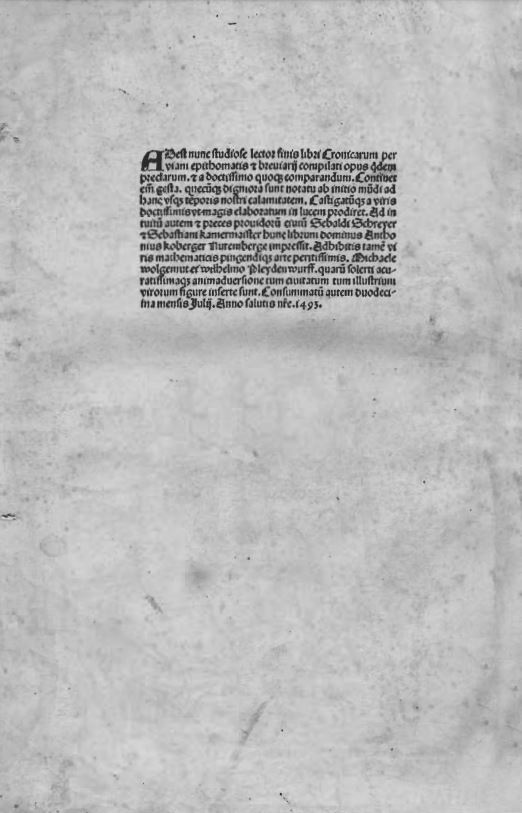 ADest nunc studiose lector finis libri Cronicarum per
viam epithomatis ⁊ breuiarij compilati opus q̄dem
preclarum. ⁊ a doctissimo quoqꝫ comparandum. Continet
em̄ gesta. quecūqꝫ digniora sunt notatu ab initio mūdi ad
hanc vsqꝫ tēporis nostri calamitatem. Castigatūqꝫ a viris
doctissimis vt magis elaboratum in lucem prodiret. Ad in
tuitū autem ⁊ preces prouidorū ciuiū Sebaldi Schreyer
⁊ Sebastiani kamermaister hunc librum dominus Antho
nius koberger Nuremberge impressit. Adhibitis tamē vi
ris mathematicis pingendiqꝫ arte peritissimis. Michaele
wolgemut et wilhelmo Pleydenwurff. quarū solerti acu-
ratissimaqꝫ animaduersione tum ciuitatum tum illustrium
virorum figure inserte sunt. Consummatū autem duodeci-
ma mensis Julij. Anno salutis nr̄e. 1493.